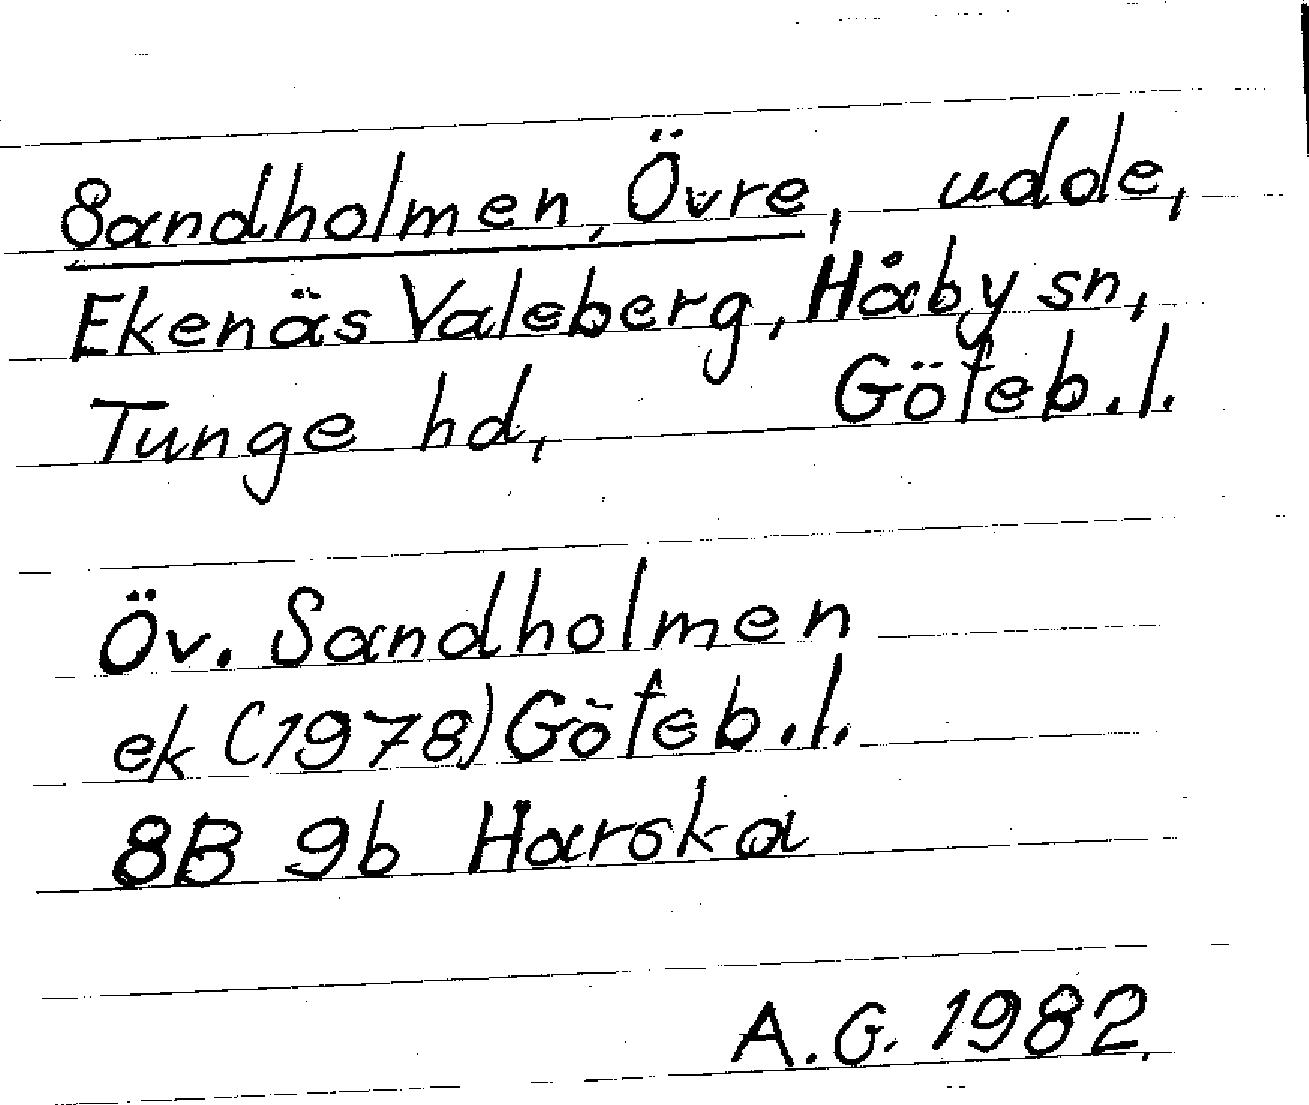 Sandholmen, Övre, udde,
Ekenäs Valeberg, Håby sn,
Tunge hd, Göteb.l.
Öv. Sandholmen
ek (1978) Göteb.l.
8B 9b Harska
A.G. 1982.